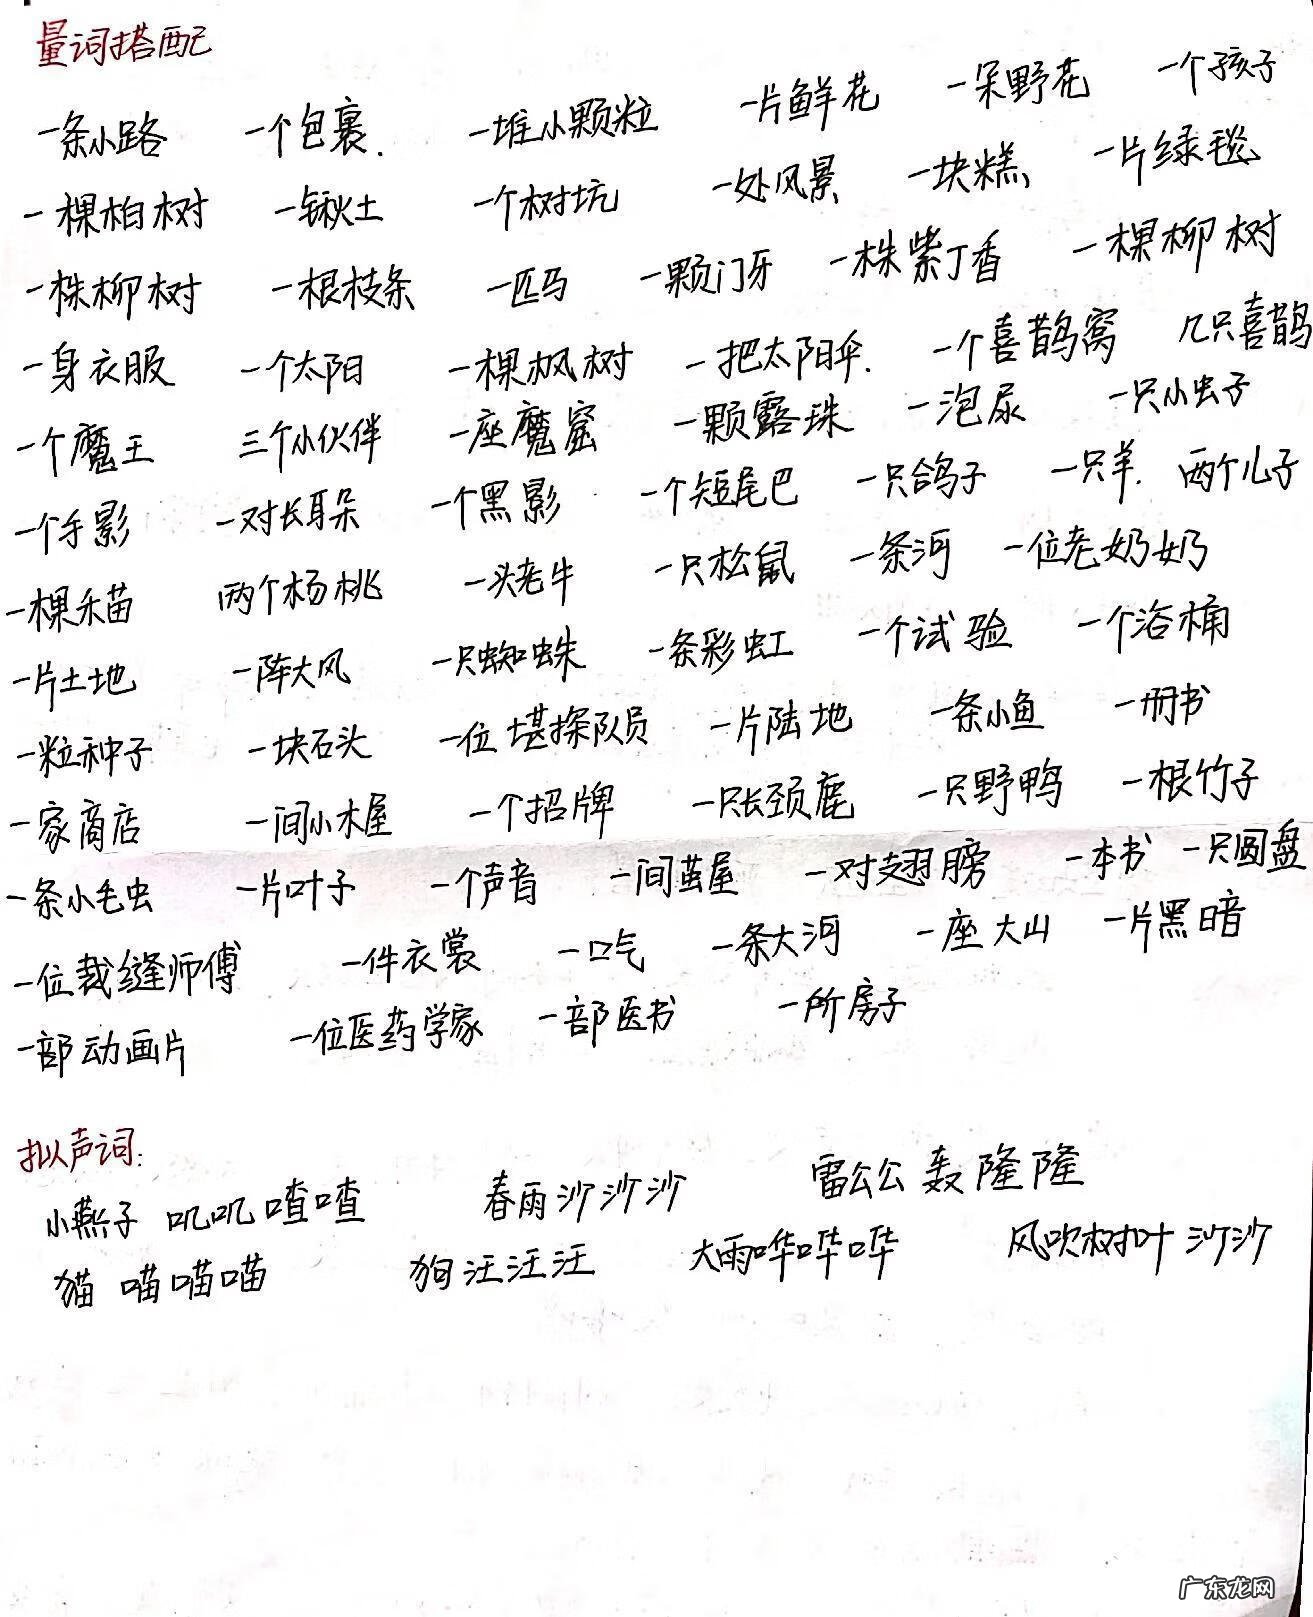 量词搭配
一条小路 一个包裹. 一堆小颗粒 一片鲜花 一朵野花 一个孩子
一棵柏树 一锹土 一个树坑 一处风景 一块糕 一片绿毯
一株柳树 一根枝条 一匹马 一颗门牙 一株紫丁香 一棵柳树
一身衣服 一个太阳 一棵枫树 一把太阳伞. 一个喜鹊窝 几只喜鹊
一个魔王 三个小伙伴 一座魔窟 一颗露珠 一泡尿 一只小虫子
一个手影 一对长耳朵 一个黑影 一个短尾巴 一只鸽子 一只羊. 两个儿子
一棵禾苗 两个杨桃 一头老牛 一只松鼠 一条河 一位老奶奶
一片土地 一阵大风 一只蜘蛛 一条彩虹 一个试验 一个浴桶
一粒种子 一块石头 一位堪探队员 一片陆地 一条小鱼 一册书
一家商店 一间小木屋 一个招牌 一只长颈鹿 一只野鸭 一根竹子
一条小毛虫 一片叶子 一个声音 一间茧屋 一对翅膀 一本书 一只圆盘
一位裁缝师傅 一件衣裳 一口气 一条大河 一座大山 一片黑暗
一部动画片 一位医药学家 一部医书 一所房子
拟声词:
小燕子 叽叽喳喳 春雨沙沙沙 雷公公轰隆隆
猫 喵喵喵 狗汪汪汪 大雨哗哗哗 风吹树叶沙沙
广东龙网